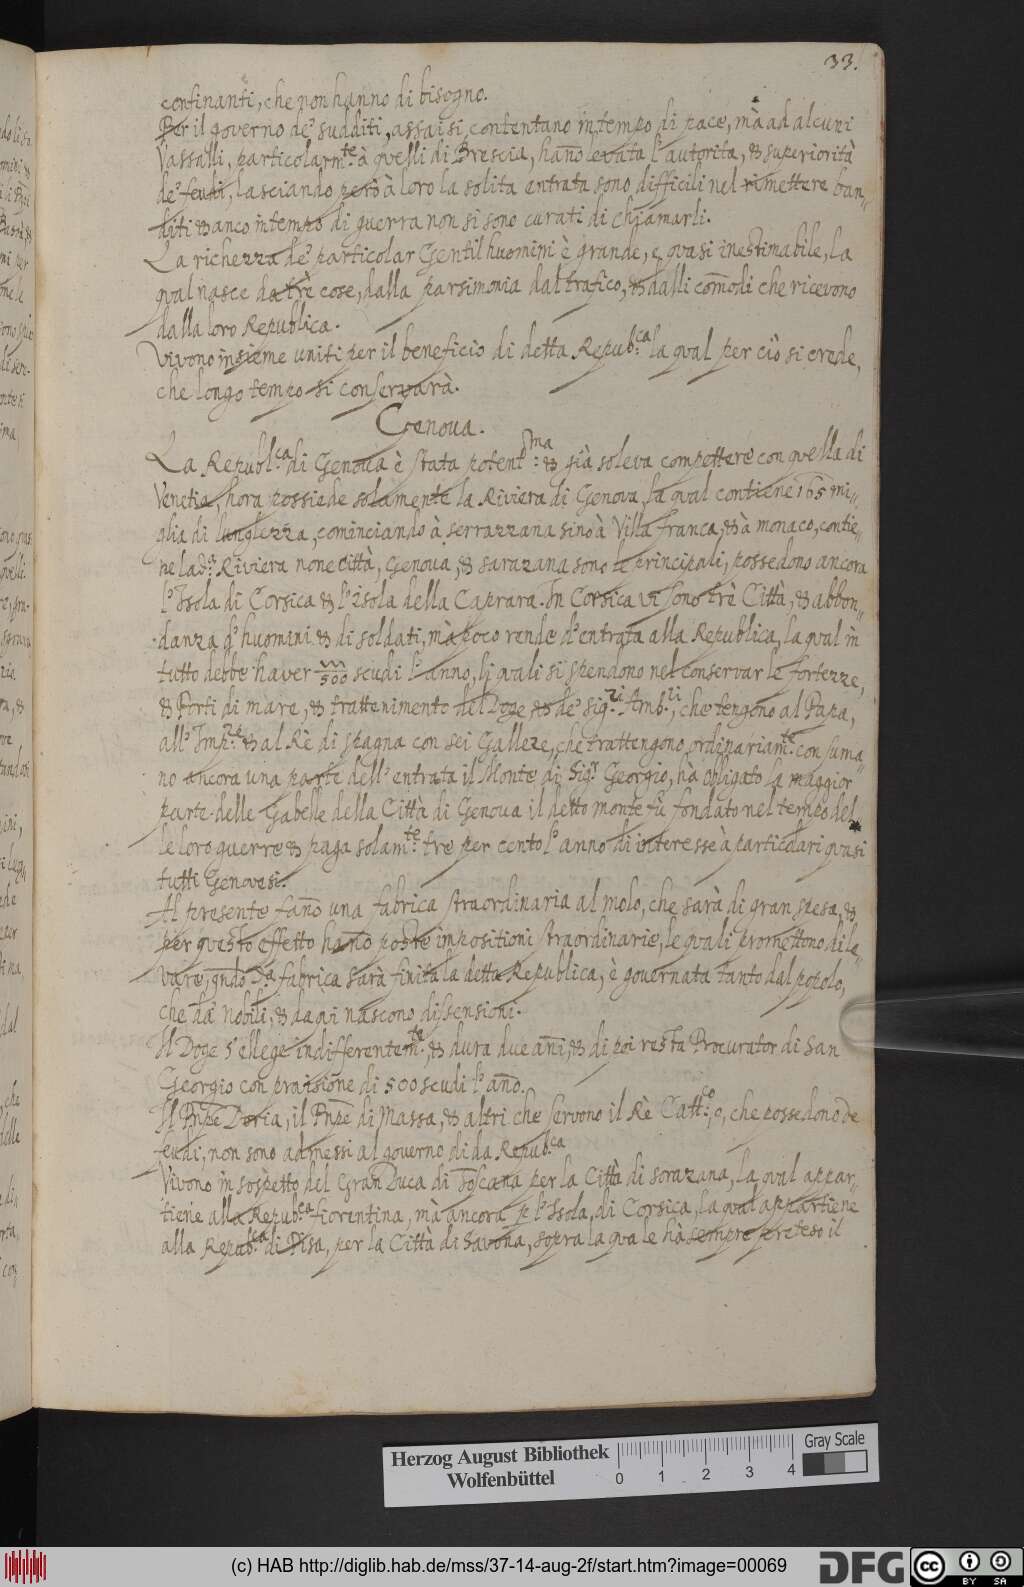 33.
confinanti, che non hanno di bisogno.
Per il governo de' sudditi, assai si contentano in tempo di pace, mà ad alcuni
Vassalli, particolarm.te à quelli di Brescia, hano levata l'autorita, & superiorità
de' feudi, lasciando però à loro la solita entrata sono difficili nel rimettere ban„
diti & anco in tempo di guerra non si sono curati di chiamarli.
La richezza de' particolar Gentilhuomini è grande, e quasi inestimabile, la
qual nasce da trè cose, dalla parsimonia dal trafico, & dalli com̃odi che ricevono
dalla loro Republica.
Vivono insieme uniti per il beneficio di detta Repub.ca la qual per ciò si crede,
che longo tempo si conservarà.
Genova.
La Republ.ca di Genova è stata potent.ma & già soleva compettere con quella di
Venetia, hora possiede solamente la Riviera di Genova, la qual contiene 165 mi„
glia di lunghezza, cominciando à serrazzana sino à Villa franca, & à monaco, contie„
ne la d.a Riviera none città, Genova, & sarazana sono le principali, possedono ancora
l'Isola di Corsica & l'isola della Caprara. In Corsica vi sono trè Città, & abbon„
danza d'huomini & di soldati, mà poco rende d'entrata alla Republica, la qual in
tutto debbe haver 500 scudi l'anno, li quali si spendono nel conservar le fortezze,
& Porti di mare, & trattenimento del Doge, & de' sig.ri Amb.ri, che tengono al Papa,
all' Imp.re & al Rè di spagna con sei Galleze, che trattengono ordinariam.te consuma„
no ancora una parte dell'entrata il Monte di Sig.r Georgio, hà obligato la maggior
parte delle Gabelle della Città di Genova il detto monte fù fondato nel tempo del
le loro guerre & paga solam.te tre per cento l'anno di interesse à particolari quasi
tutti Genovesi.
Al presente fano una fabrica straordinaria al molo, che sarà di gran spesa, &
per questo effetto hano poste impositioni straordinarie, le quali promettono di le„
vare, qndo d.a fabrica sarà finita la detta Republica, è governata tanto dal popolo,
che da nobili, & da qui nascono dissensioni.
Il Doge s'ellege indifferentem.te, & dura due ani, & di poi resta Procurator di San
Georgio con provisione di 500 scudi l'ano.
Il Pnpe Doria, il Pnpe di Massa, & altri che servono il Rè Catt.co, che possedono de
feudi, non sono admessi al governo di da Repub.ca
Vivono in sospetto del Gran Duca di Toscana per la Città di sorazana, la qual appar„
tiene alla Repub.ca fiorentina, mà ancora p l'Isola, di Corsica, la qual appartiene
alla Repub.ca di Pisa, per la Città di Savona, sopra la quale hà sempre preteso il
Herzog August Bibliothek
Wolfenbüttel
0 1 2 3 4
Gray Scale
(c) HAB http://diglib.hab.de/mss/37-14-aug-2f/start.htm?image=00069
DFG
cc BY SA